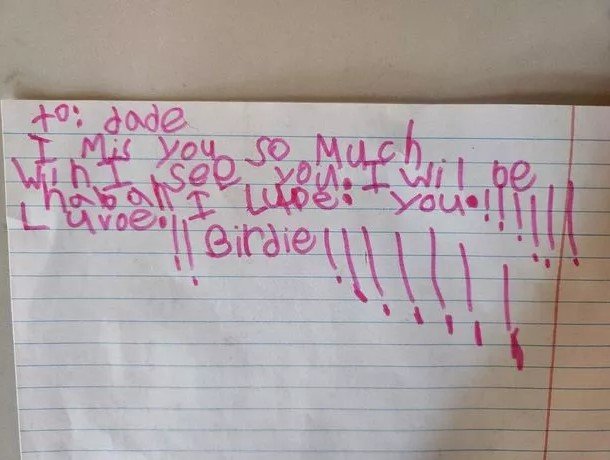 to: dade
I Mis you so Much
Win I see you. I wil be
habah I Luve. you.!!!!!!!
Luvoe.!! Birdie!!!!!!!!!